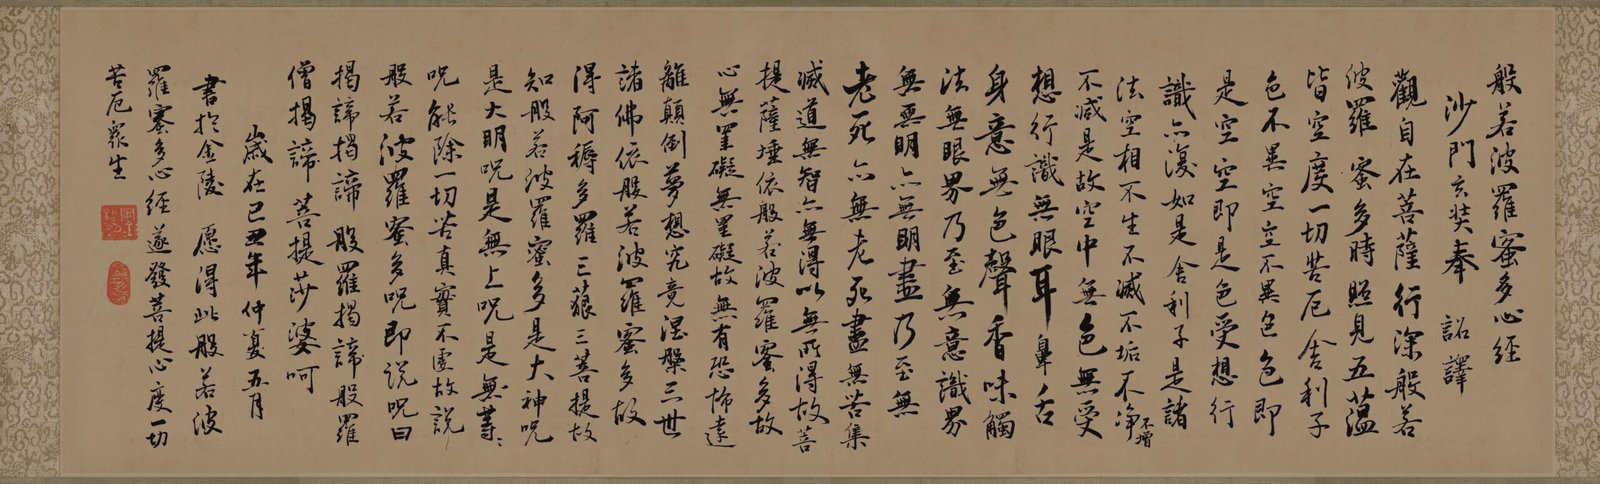 般若波羅蜜多心經
沙門玄奘奉 詔譯
觀自在菩薩行深般若
波羅蜜多時照見五蘊
皆空度一切苦厄舍利子
色不異空空不異色色即
是空空即是色受想行
識亦復如是舍利子是諸
法空相不生不滅不垢不淨不增
不減是故空中無色無受
想行識無眼耳鼻舌
身意無色聲香味觸
法無眼界乃至無意識界
無無明亦無無明盡乃至無
老死亦無老死盡無苦集
滅道無智亦無得以無所得故菩
提薩埵依般若波羅蜜多故
心無罣礙無罣礙故無有恐怖遠
離顛倒夢想究竟涅槃三世
諸佛依般若波羅蜜多故
得阿耨多羅三藐三菩提故
知般若波羅蜜多是大神呪
是大明呪是無上呪是無等〻
呪能除一切苦真實不虛故說
般若波羅蜜多呪即說呪曰
揭諦揭諦 般羅揭諦般羅
僧揭諦 菩提莎婆呵
歲在己丑年仲夏五月
書於金陵 愿得此般若波
羅蜜多心經遂發菩提心度一切
苦厄眾生